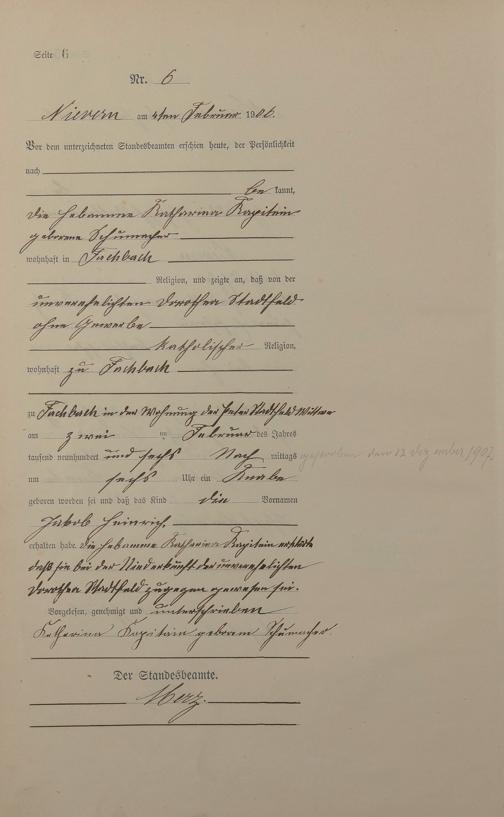 Seite 6
Nr. 6
Nievern am 4ten Februar 1906.
Vor dem unterzeichneten Standesbeamten erschien heute, der Persönlichkeit
nach
be kannt,
die Hebamme Katharina Kapitein
geborene Schumacher
wohnhaft in Fachbach
Religion, und zeigte an, daß von der
unverehelichten Dorothea Stadtfeld
ohne Gewerbe
katholischer Religion,
wohnhaft zu Fachbach
zu Fachbach in der Wohnung der Peter Stadtfeld Wittwe
am zwei ten Februar des Jahres
tausend neunhundert und sechs Nach mittags
um sechs Uhr ein Knabe
geboren worden sei und daß das Kind die Vornamen
Jakob Heinrich
erhalten habe. Die Hebamme Katharina Kapitein erklärte
daß sie bei der Niederkunft der unverehelichten
Dorothea Stadtfeld zugegen gewesen sei.
Vorgelesen, genehmigt und unterschrieben
Katherina Kapitain geborene Schumacher
Der Standesbeamte.
Merz.
gestorben den 12 Dezember 1907.